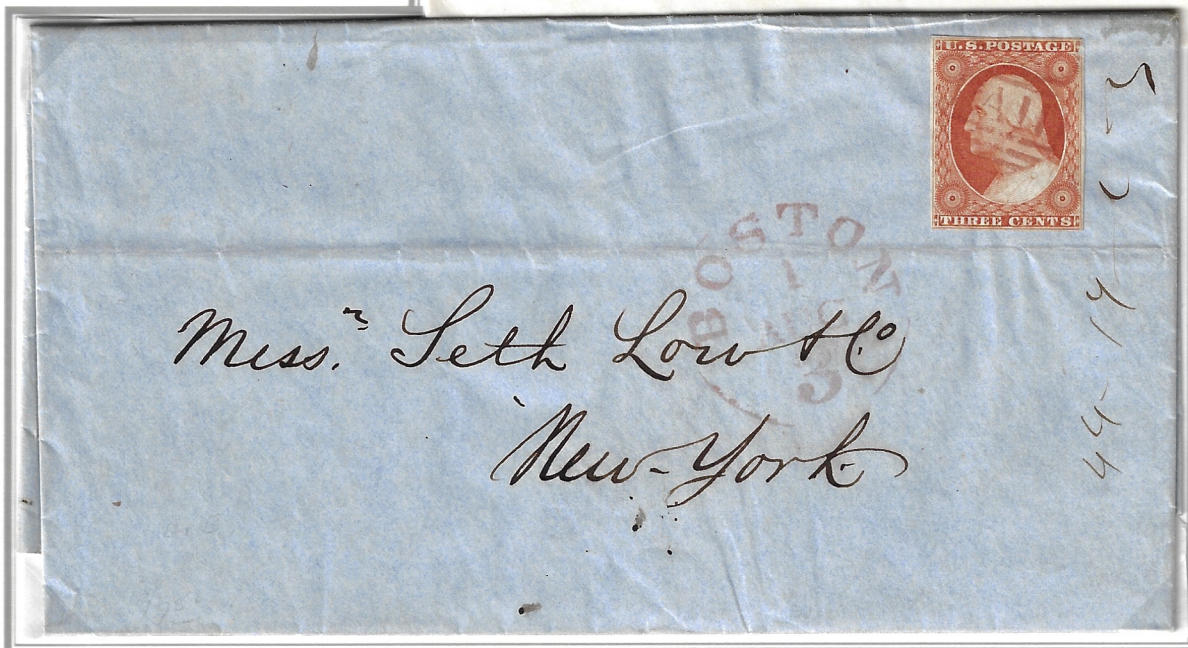 U.S. POSTAGE
PAID
THREE CENTS
BOSTON
1
AUG
3
Mess.rs Seth Low & Co
New-York.
44-14